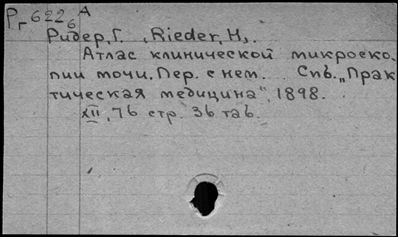 Pг 622 6 A
Ридер, Г. (Rieder, H).
Атлас клинической микроско.
пии мочи. Пер. с нем. Спб. „Прак
тическая медицина", 1898.
XII, 76 стр. 36 таб.